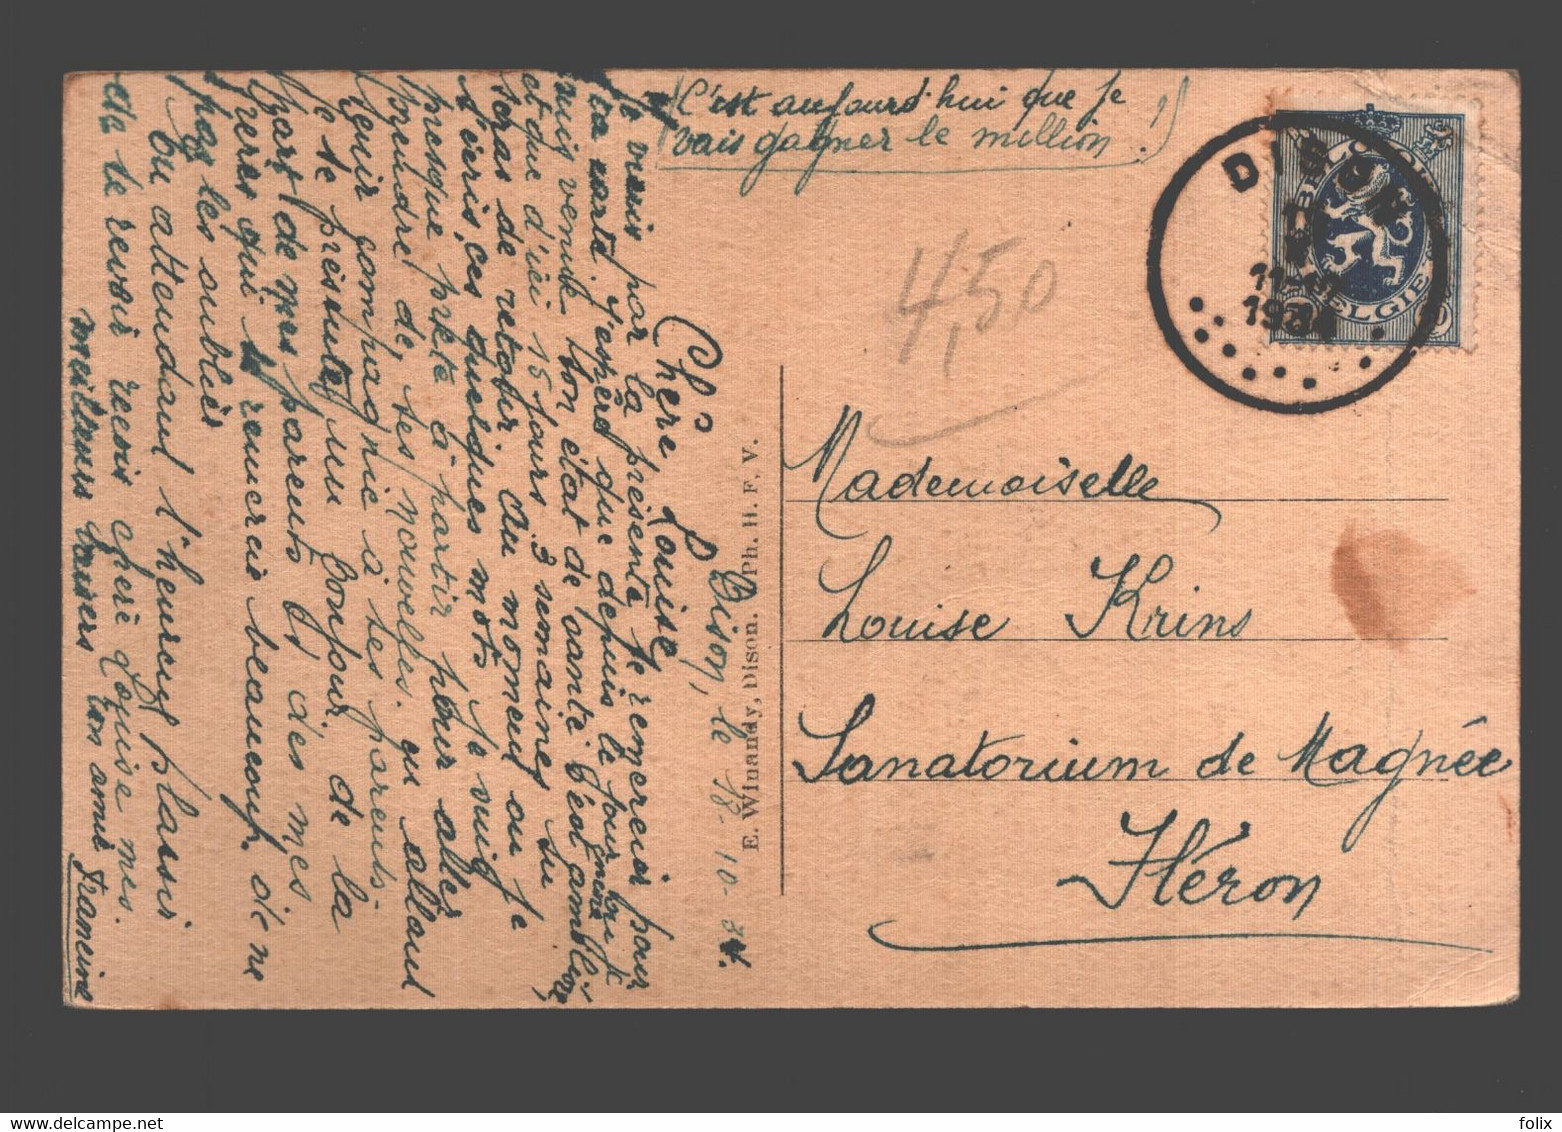 (C'est aujourd'hui que je
vais gagner le million !)
DISON
11-12
193
BELGIQUE
BELGIE
4,50
Mademoiselle
Louise Krins
Sanatorium de Magnée
Héron
E. Winandy, Dison. Ph. H. F. V.
Dison, le 18-10-34.
Chère Louise
Je viens par la présente te remercier pour
ta carte. J'espère que depuis le jour ou je
suis venue ton état de santé s'est amélioré
et que d'ici 15 jours 3 semaines tu
seras de retour. Au moment ou je
t'écris ces quelques mots je suis
presque prête à partir pour aller
prendre de tes nouvelles en allant
tenir compagnie à tes parents.
Je te présente un bonjour de la
part de mes parents et des mes
frères qui te remercie beaucoup de ne
pas les oublier
En attendant l'heureux plaisir
de te revoir reçois chère Louise mes
meilleurs baisers ton amie Francine